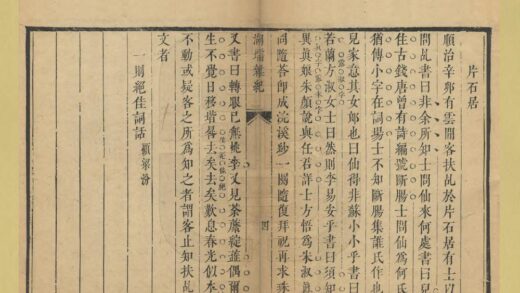 片石居
順治辛卯有雲間客扶乩於片石居有士以
問乩書曰非余所知士問仙來何處書曰兒
住古錢唐曾有詩編號斷腸士問仙爲何氏
猶傳小字在詞場士不知斷腸集誰氏作也
兒家意其女郎也曰仙得非蘇小小乎書曰
若蘭方淑女士曰然則李易安乎書曰須知
異眞娘朱顏說與任君詳士方悟爲朱淑
問隨答即成浣溪沙一闋隨復拜祝再求珠
湖壖雜記
四
又書曰轉眼已無桃李又見荼蘼綻蕋偶爾
生不覺日移晷去矣去矣歎息春光似
不動或疑客之所爲知之者謂客止知扶乩
文者
一則絕佳詞話 顧梁汾